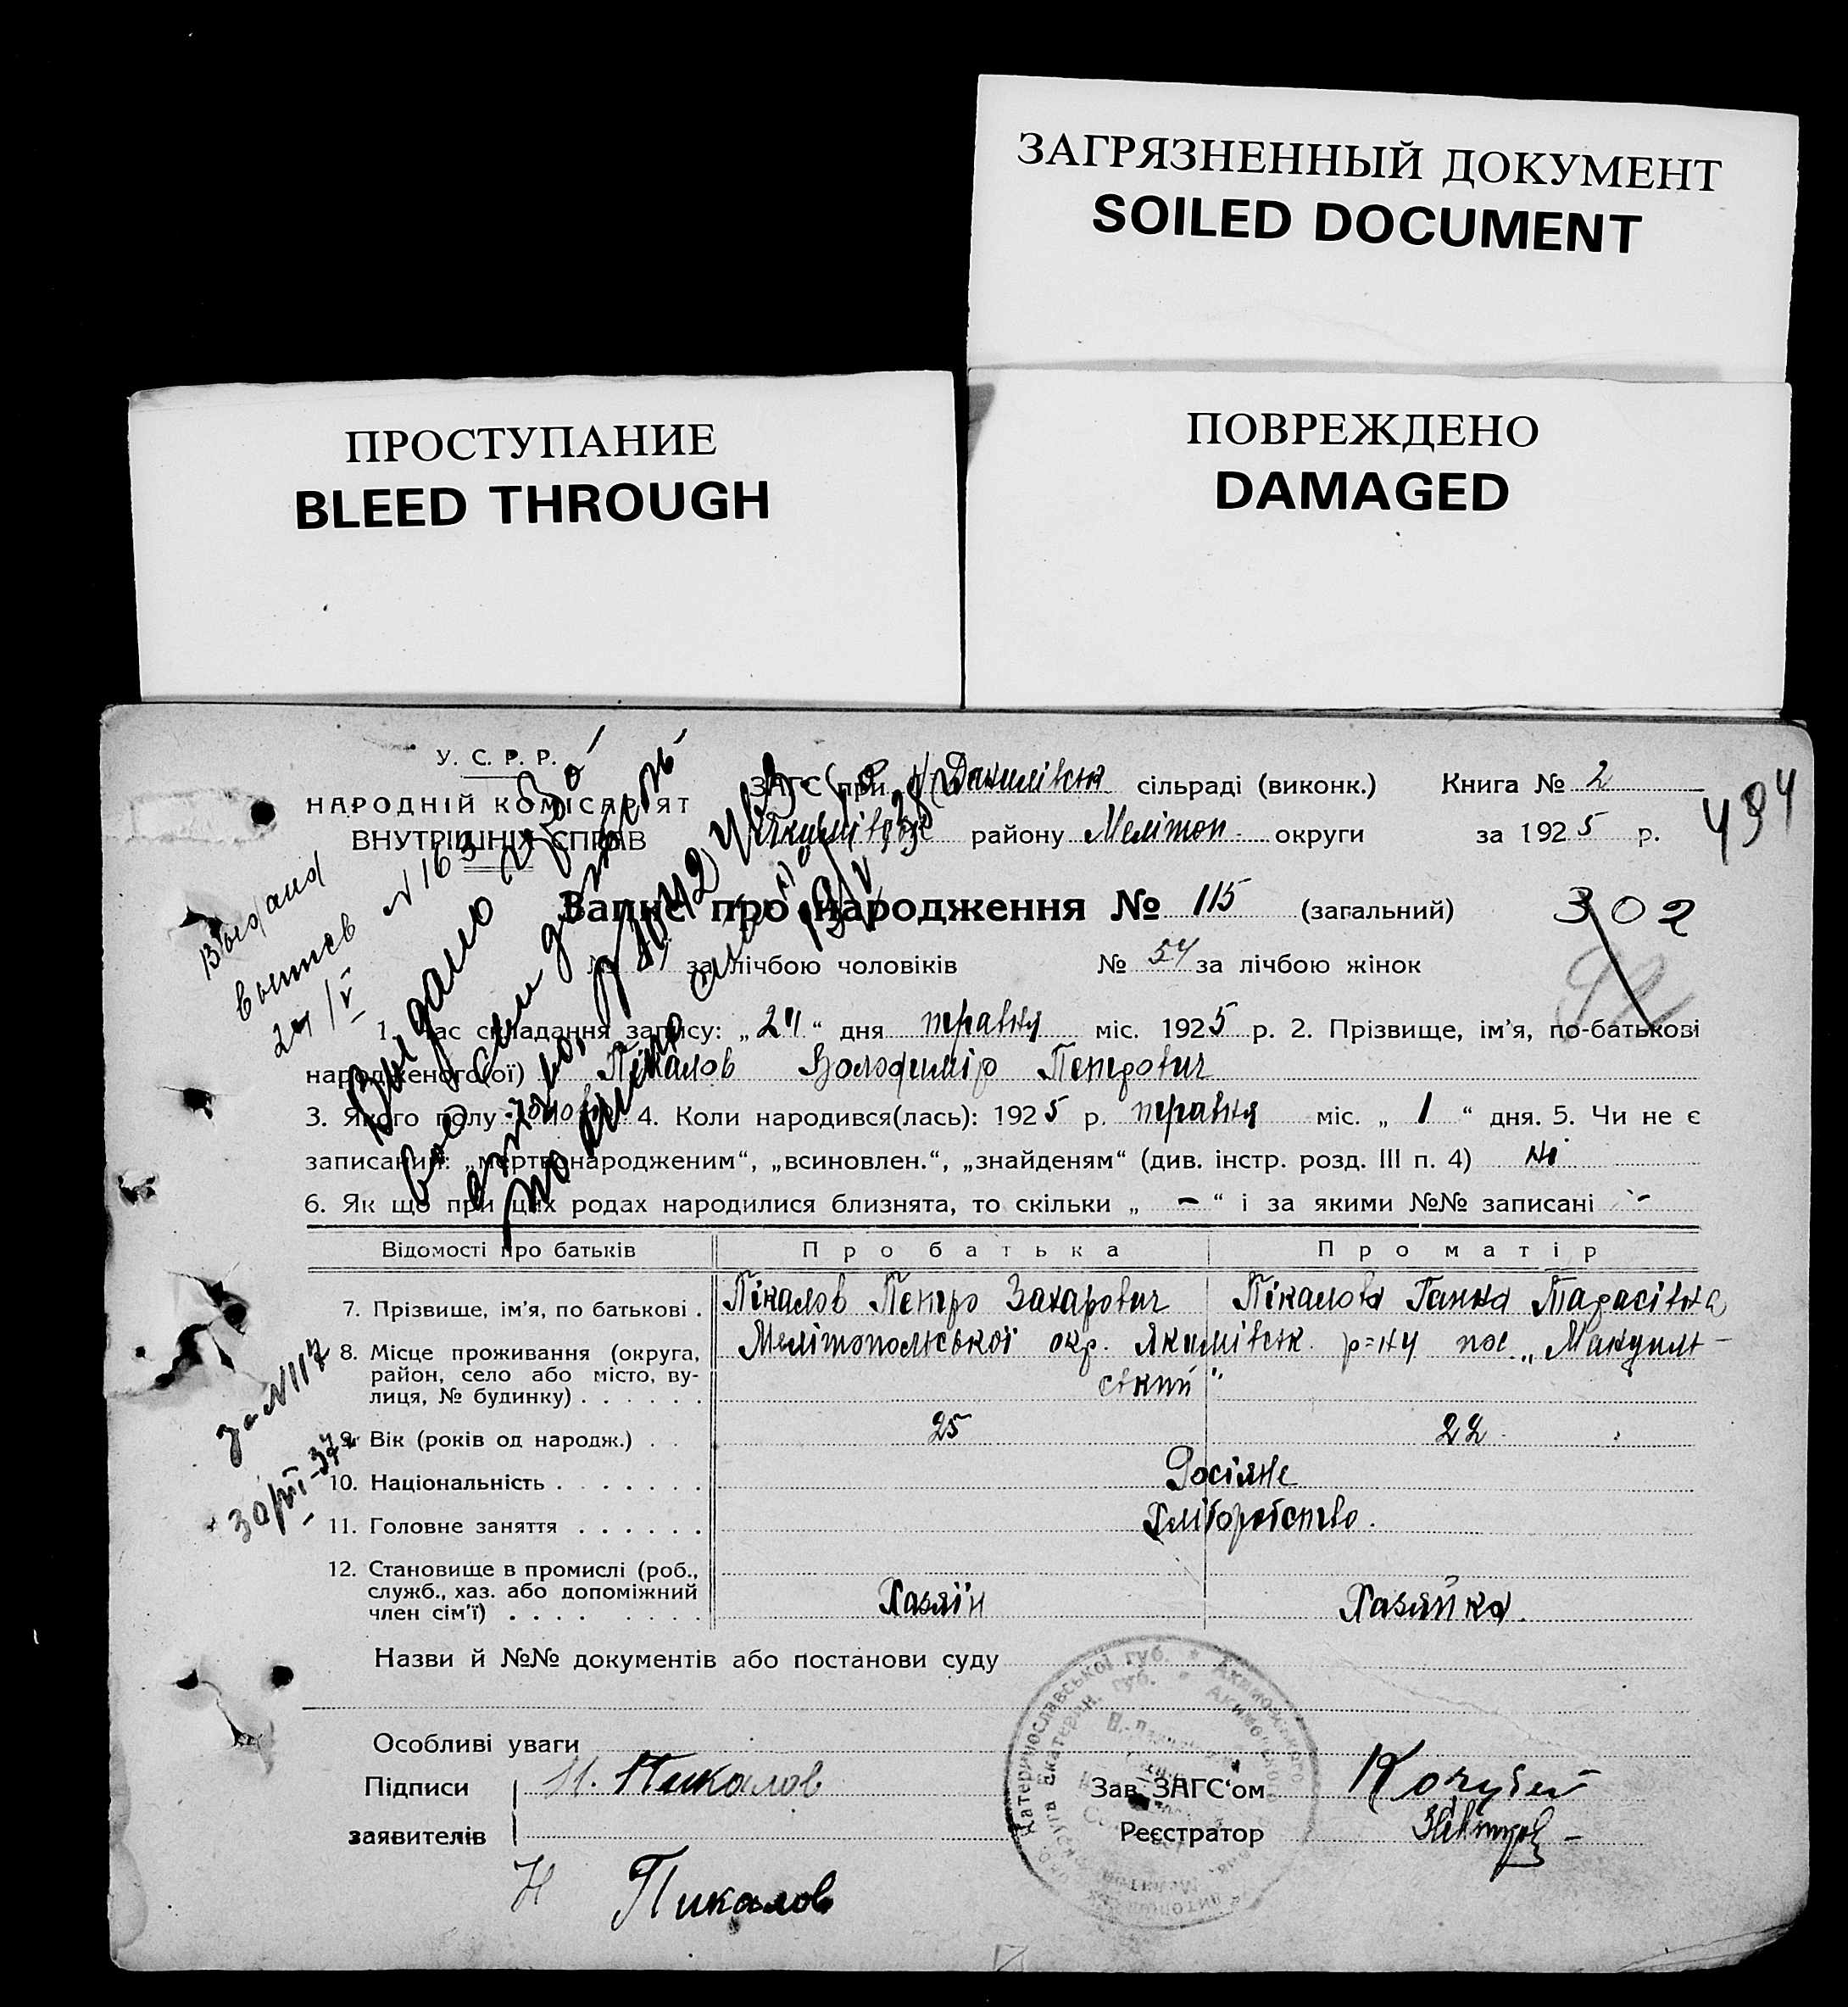 ЗАГРЯЗНЕННЫЙ ДОКУМЕНТ
SOILED DOCUMENT
ПРОСТУПАНИЕ
BLEED THROUGH
ПОВРЕЖДЕНО
DAMAGED
У. С. Р. Р.
НАРОДНІЙ КОМІСАРІЯТ
ВНУТРІШНІХ СПРАВ
ЗАГС при Данилівськ сільраді (виконк.) Книга № 2
Якимівськ району Мелітоп. округи за 1925 р.
494
Запис про народження № 115 (загальний)
302
92
№ за лічбою чоловіків № 54 за лічбою жінок
Выдана
выпись №163
24/V
Видано
1. Час складання запису: „24“ дня травня міс. 1925 р. 2. Прізвище, ім'я, по-батькові
народженого(ої) Пікалов Володимір Петрович
3. Якого полу 4. Коли народився(лась): 1925 р. травня міс. „1“ дня. 5. Чи не є
записаний: „мертвонародженим“, „всиновлен.“, „знайденям“ (див. інстр. розд. III п. 4) ні
6. Як що при цих родах народилися близнята, то скільки „ - “ і за якими №№ записані -
Відомості про батьків Про батька Про матір
7. Прізвище, ім'я, по батькові . Пікалов Петро Захарович Пікалова Ганна Тарасівна
8. Місце проживання (округа, район, село або місто, вулиця, № будинку) . . . . . . Мелітопольської окр. Якимівськ. р=ну пос.
ський"
за №117
30/VI-37
9. Вік (років од народж.) . . 25 22
10. Національність . . . . . . . Росіяне
11. Головне заняття . . . . . . Хліборобство.
12. Становище в промислі (роб.,
служб., хаз. або допоміжний
член сім'ї) . . . . Хазяїн Хазяйка.
Назви й №№ документів або постанови суду
Особливі уваги
Підписи Пикалов Зав. ЗАГС‘ом Кочубей
заявителів Реєстратор
Н Пикалов
Катеринославської губ. * Акимовського
Екатерин. губ. * Акимовского